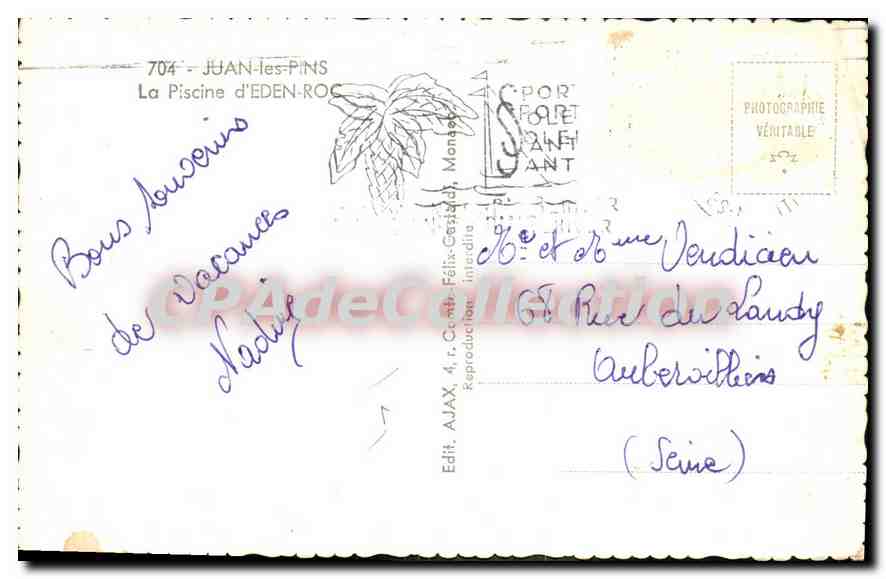 704 - JUAN-les-PINS
La Piscine d'EDEN-ROC
Bons souvenirs
de vacances
Nadine
Edit. AJAX, 4, r. Comte-Félix-Gastaldi, Monaco
Reproduction interdite
SPORT
SOLEIL
SANT
PHOTOGRAPHIE
VÉRITABLE
Mr et Mme Vendicien
68 Rue du Landy
Aubervilliers
(Seine)
CPAdeCollection